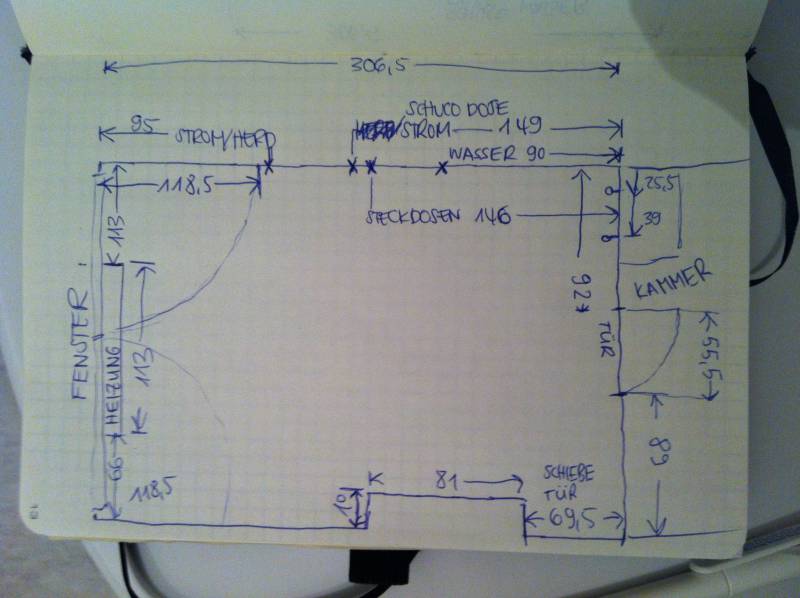 306,5
SCHUCO DOSE
95
STROM/HERD
STROM 149
WASSER 90
118,5
25,5
K 113
STECKDOSEN 146
39
KAMMER
92
FENSTER
HEIZUNG
113
TÜR
55,5
66
118,5
K
81
10
SCHIEBE
TÜR
69,5
89